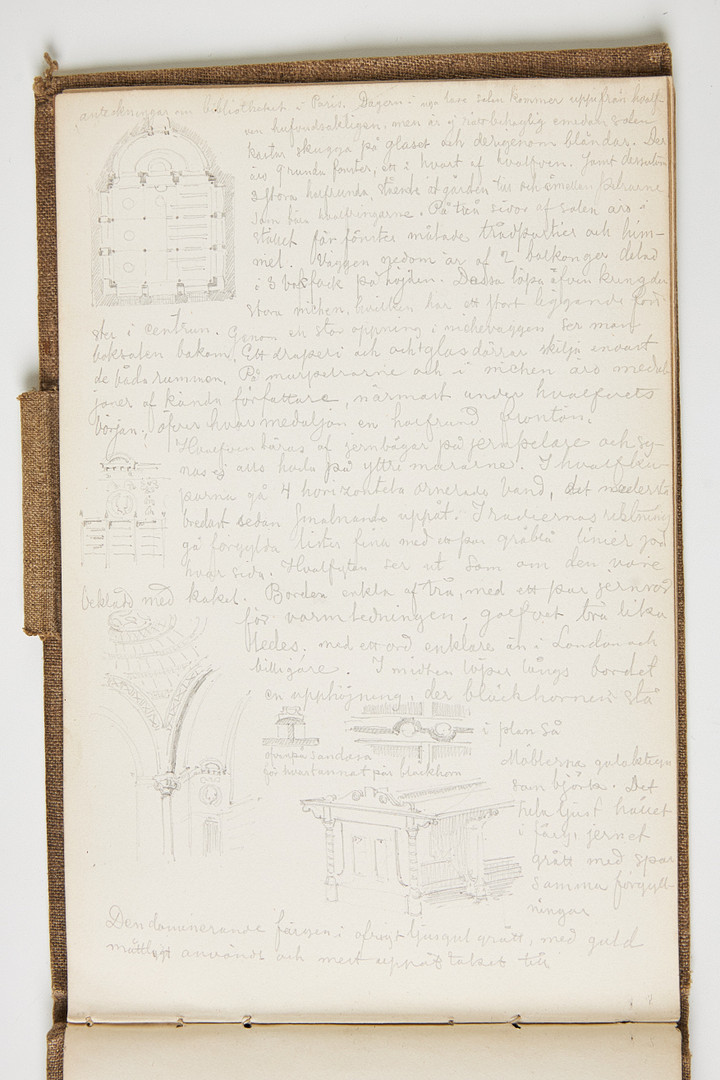 anteckningar om bibliotheket i Paris. Dagern i salen kommer uppifrån hvalf-
ven hufvudsakligen, men är ej rätt behaglig emedan solen
kastar skugga på glaset och derigenom bländar. Det
äro 9 runda fönster, ett i hvart af hvalfven. Samt dessutom
3 stora halfrunda, stående åt gården till och emellan pelrarne
som bära hvalfringarne. På två sidor af salen äro i
stället för fönster målade trädpartier och him-
mel. Väggen nedom är af 2 balkonger delad
i 3 på höjden. Dessa löpa äfven kring den
stora nichen, hvilken har ett stort liggande fön-
ster i centrum. Genom en stor öppning i nicheväggen ser man
boksalen bakom. Ett draperi och glasdörrar skilja
de båda rummen. På murpelrarne och i nichen äro medal-
joner af kända författare, närmast under hvalfvets
början, öfver hvar medaljon en halfrund fronton.
Hvalfven bäras af jernbågar på jernpelare och sy-
nas ej alls hvila på yttre murarne. I hvalfku-
porna gå 4 horizontela ornerade band, det nedersta
bredast sedan smalnande uppåt. I radiernas riktning
gå förgylda lister fina med ett par gråblå linier på
hvar sida. Hvalfytan ser ut som om den vore
beklädd med kakel. Borden enkla af trä, med ett par jernrör
för varmledningen. golfvet trä lika-
ledes. med ett ord enklare än i London och
billigare. I midten löper längs bordet
en upphöjning, der bläckhornen stå
i plan så
ofvanpå sandosa
för hvart annat par bläckhorn
Möblerna gulaktiga
som björk. Det
hela ljust hållet
i färg, jernet
grått med spar
samma förgyll-
ningar
Den dominerande färgen i öfrigt ljusgul grått, med guld
måttligt användt och mest uppåt taket till